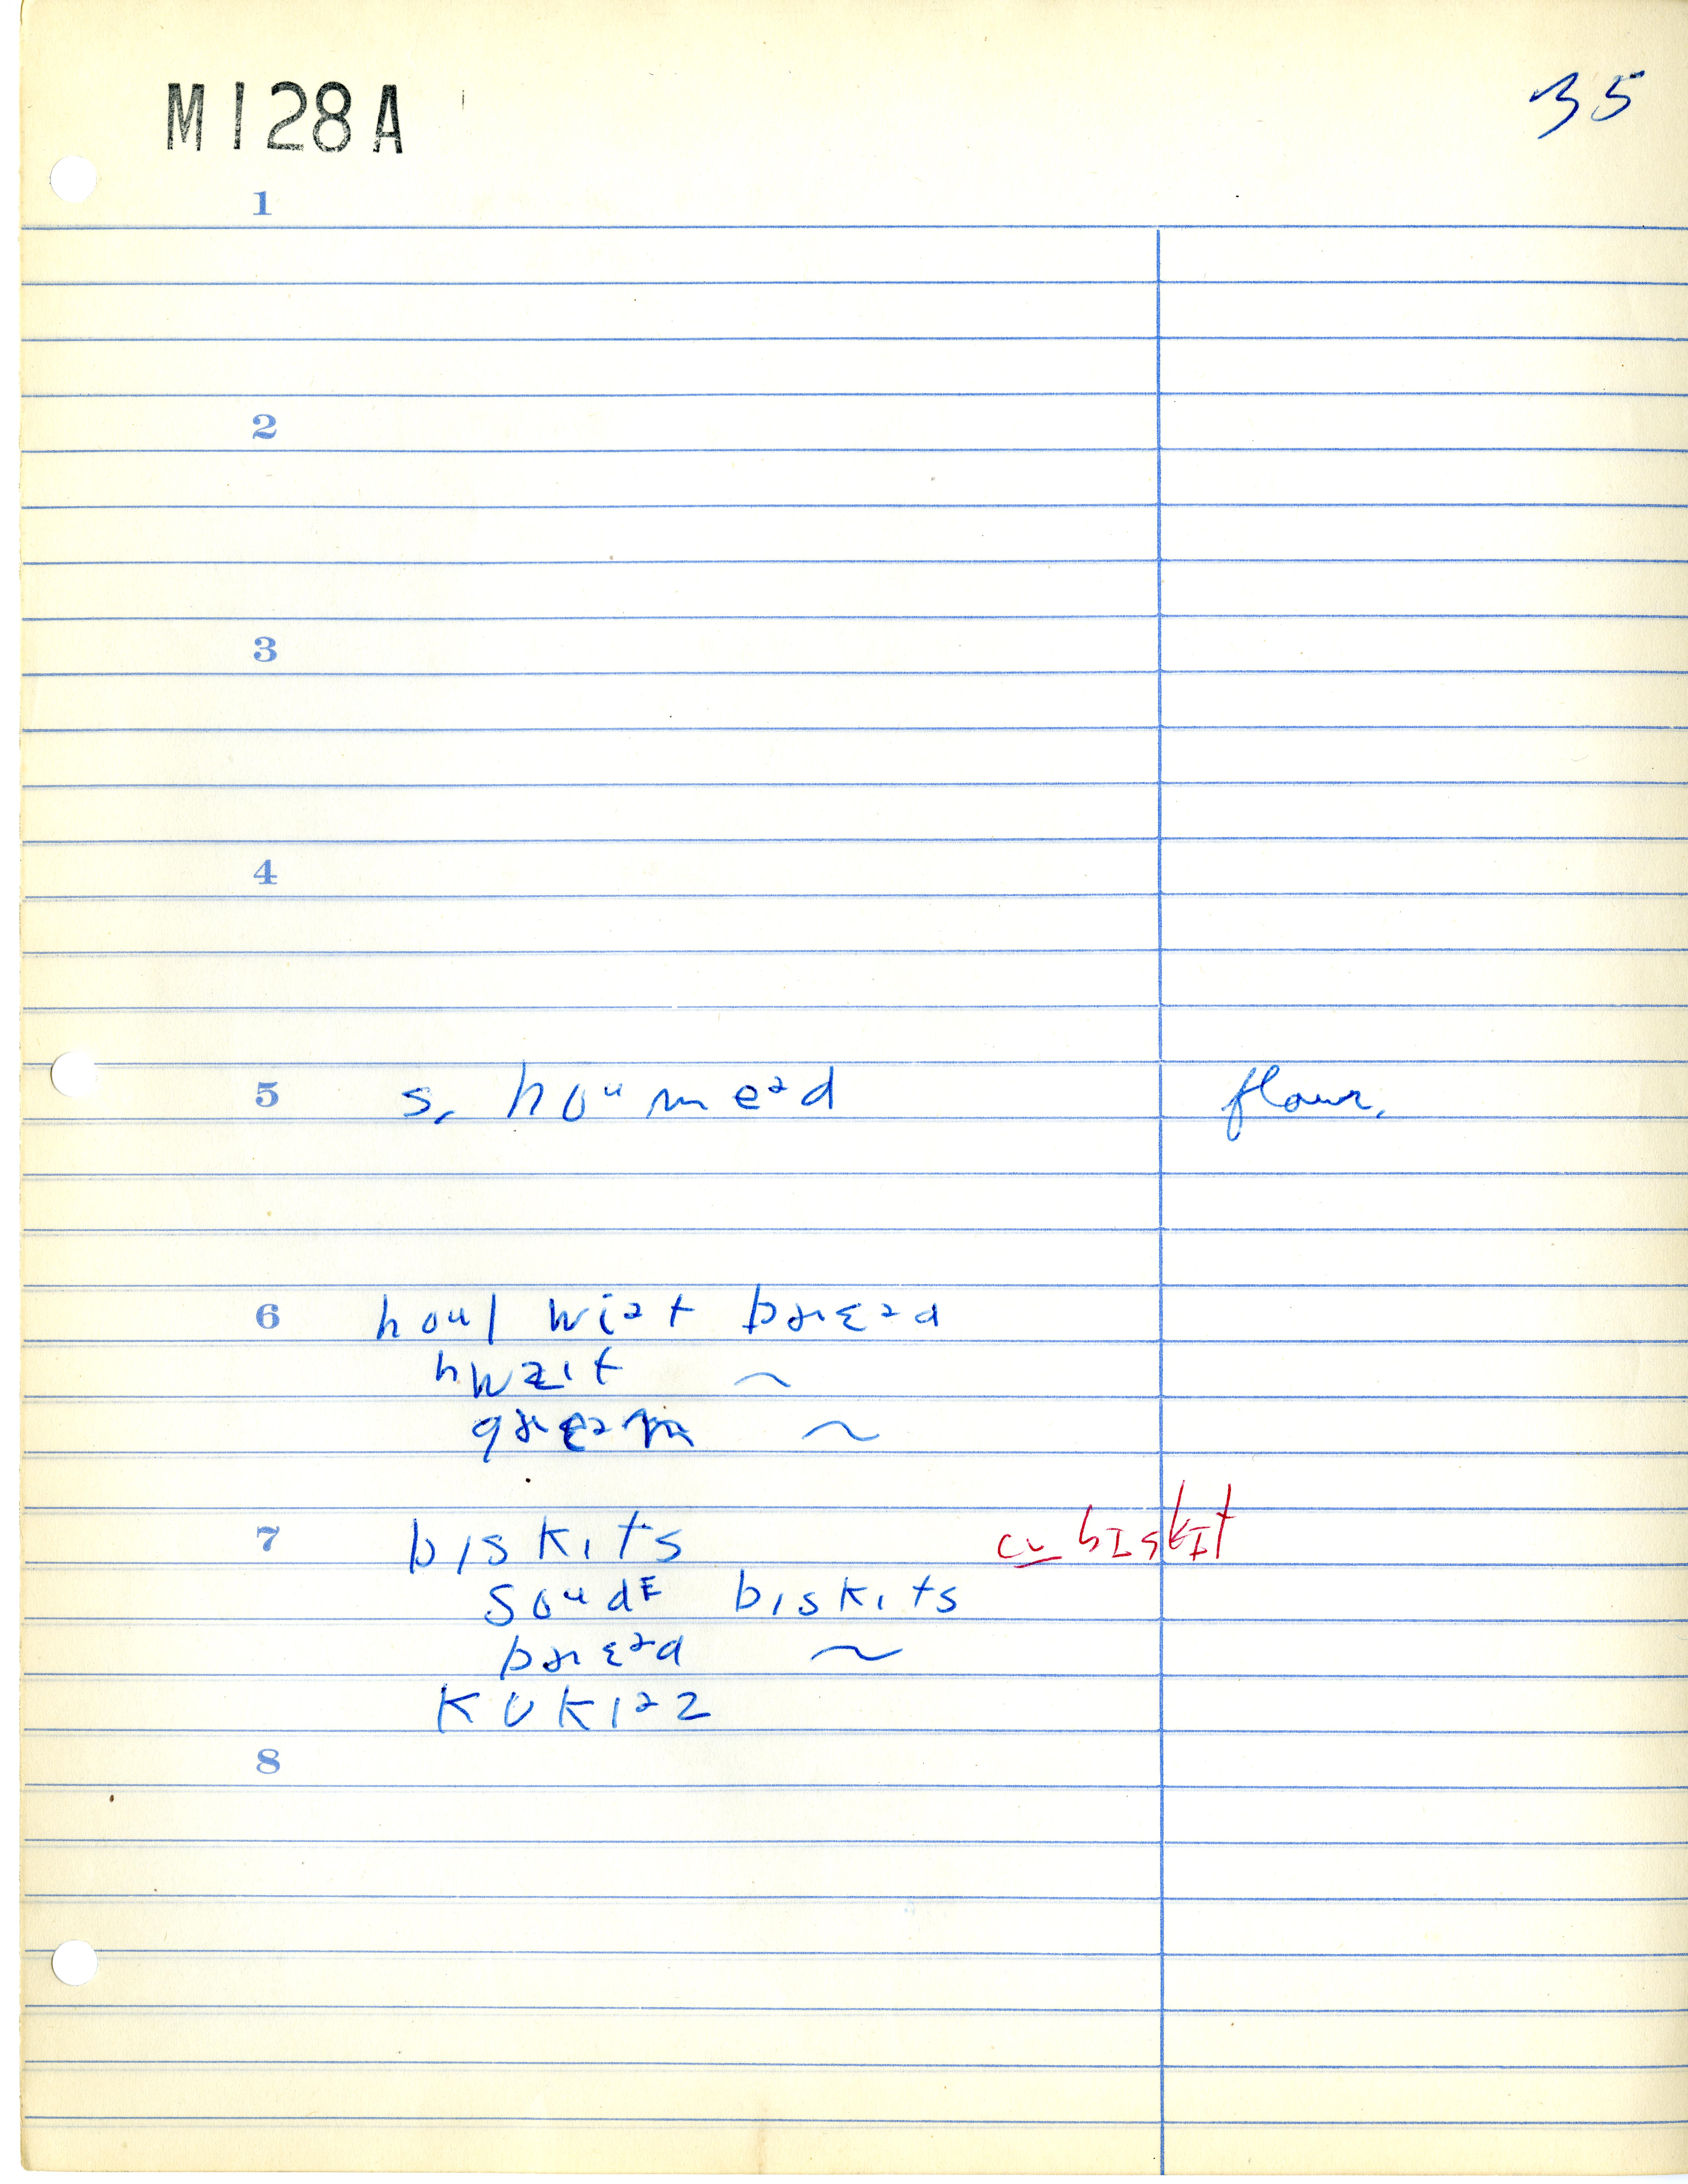 M128A
35
1
2
3
4
5 s. hoᵘmeᵊd flour.
6 hoᵘl wiᵊt bɹɛᵊd
hwaɪt ~
~
7 bɪskɪts cv bɪskɪt
soᵘdᴱ bɪskɪts
bɹɛᵊd ~
kʊkɪᵊz
8